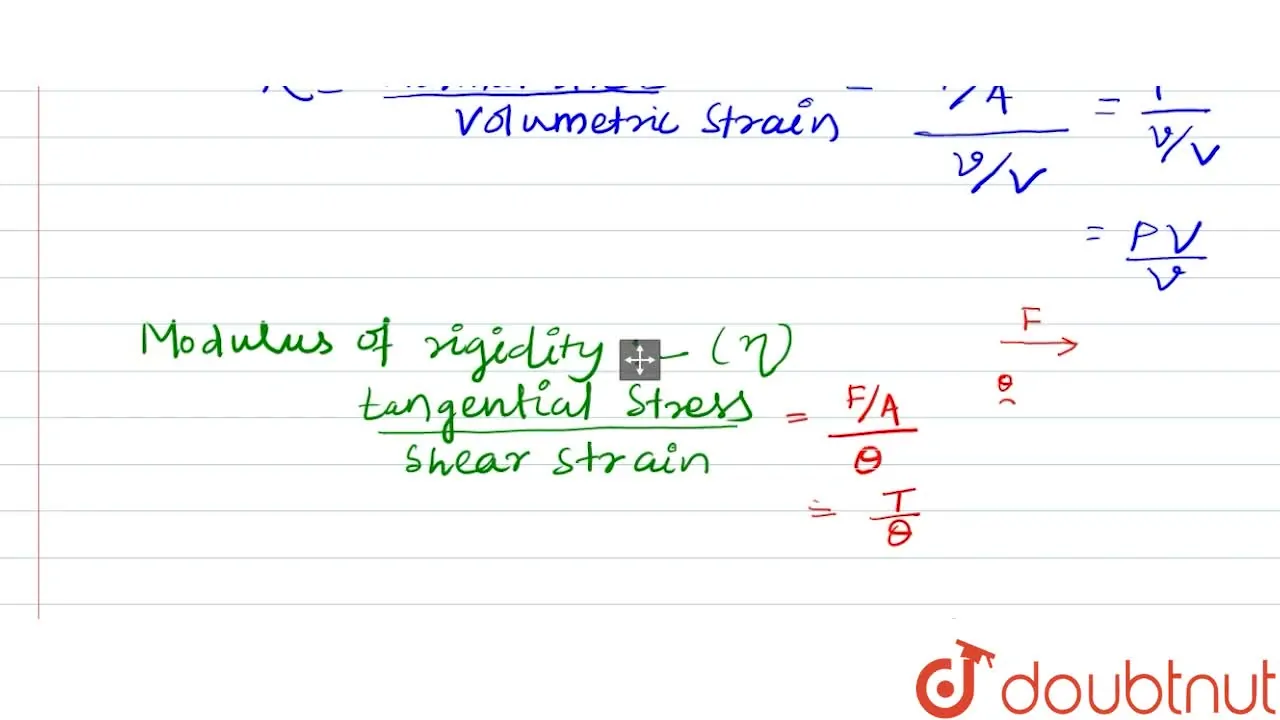 Volumetric Strain
/A
v/V
=
v/V
= PV
v
Modulus of rigidity - (η)
tangential stress
shear strain
= F/A
θ
= T
θ
F
θ
doubtnut